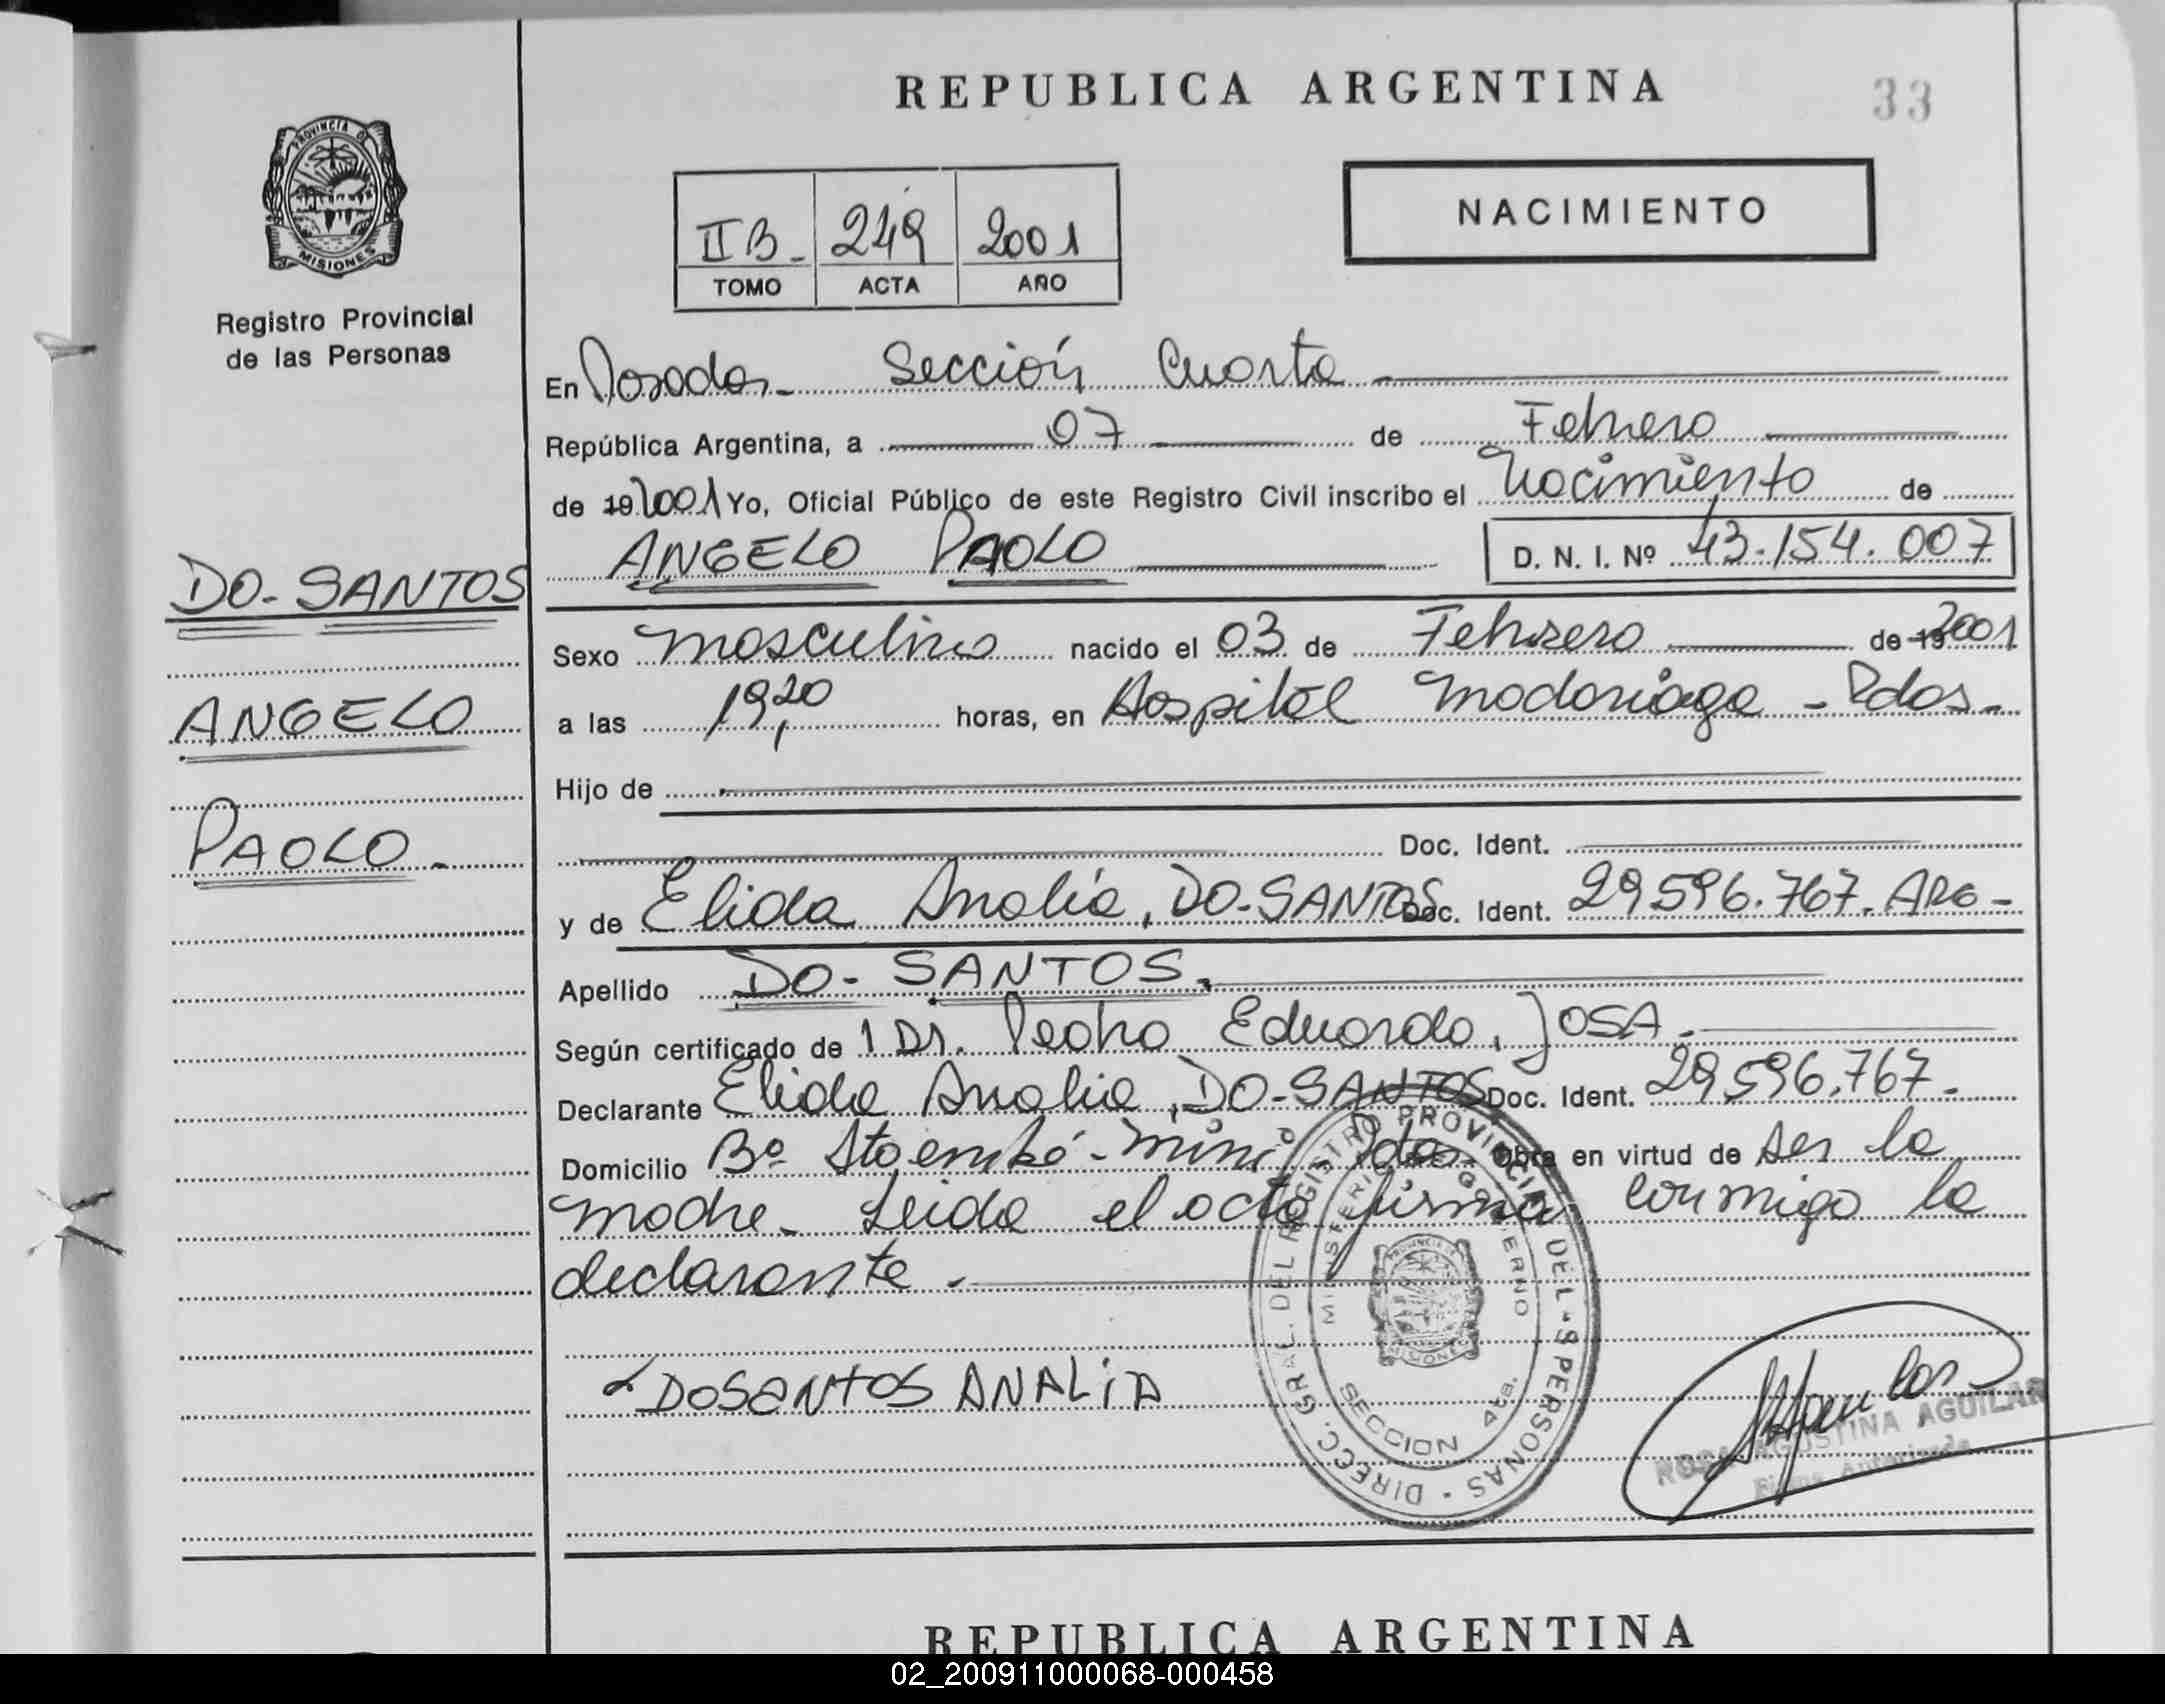 REPUBLICA ARGENTINA
33
PROVINCIA DE
MISIONES
Registro Provincial
de las Personas
IIB- 249 2001
TOMO ACTA AÑO
NACIMIENTO
En Posadas- Sección Cuarta
República Argentina, a 07 de Febrero
de 19 2001 Yo, Oficial Público de este Registro Civil inscribo el Nacimiento de
ANGELO PAOLO D. N. I. Nº 43.154.007
DO-SANTOS
ANGELO
PAOLO-
Sexo masculino nacido el 03 de Febrero de 19 2001
a las 19,20 horas, en Hospital Madariaga - Pdas-
Hijo de
Doc. Ident.
y de Elida Analía, DO-SANTOS Doc. Ident. 29.596.767. ARG-
Apellido DO-SANTOS.
Según certificado de 1 Dr. Pedro Eduardo, JOSA-
Declarante Elida Analia, DO-SANTOS Doc. Ident. 29.596.767-
Domicilio Bº Ita embé-miní Pdas- Obra en virtud de ser la
madre- Leida el acta firma conmigo la
declarante-
DIRECC. GRAL. DEL REGISTRO PROVINCIAL DE L-S PERSONAS
MINISTERIO DE GOBIERNO
PROVINCIA DE
MISIONES
SECCION 4ta.
DOSANTOS ANALiA
ROSA AGUSTINA AGUILAR
Firma Autorizada
REPUBLICA ARGENTINA
02_200911000068-000458